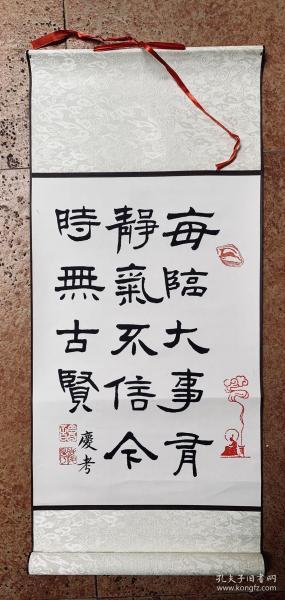 每臨大事有
靜氣不信今
時無古賢
慶考
孔夫子旧书网
www.kongfz.com